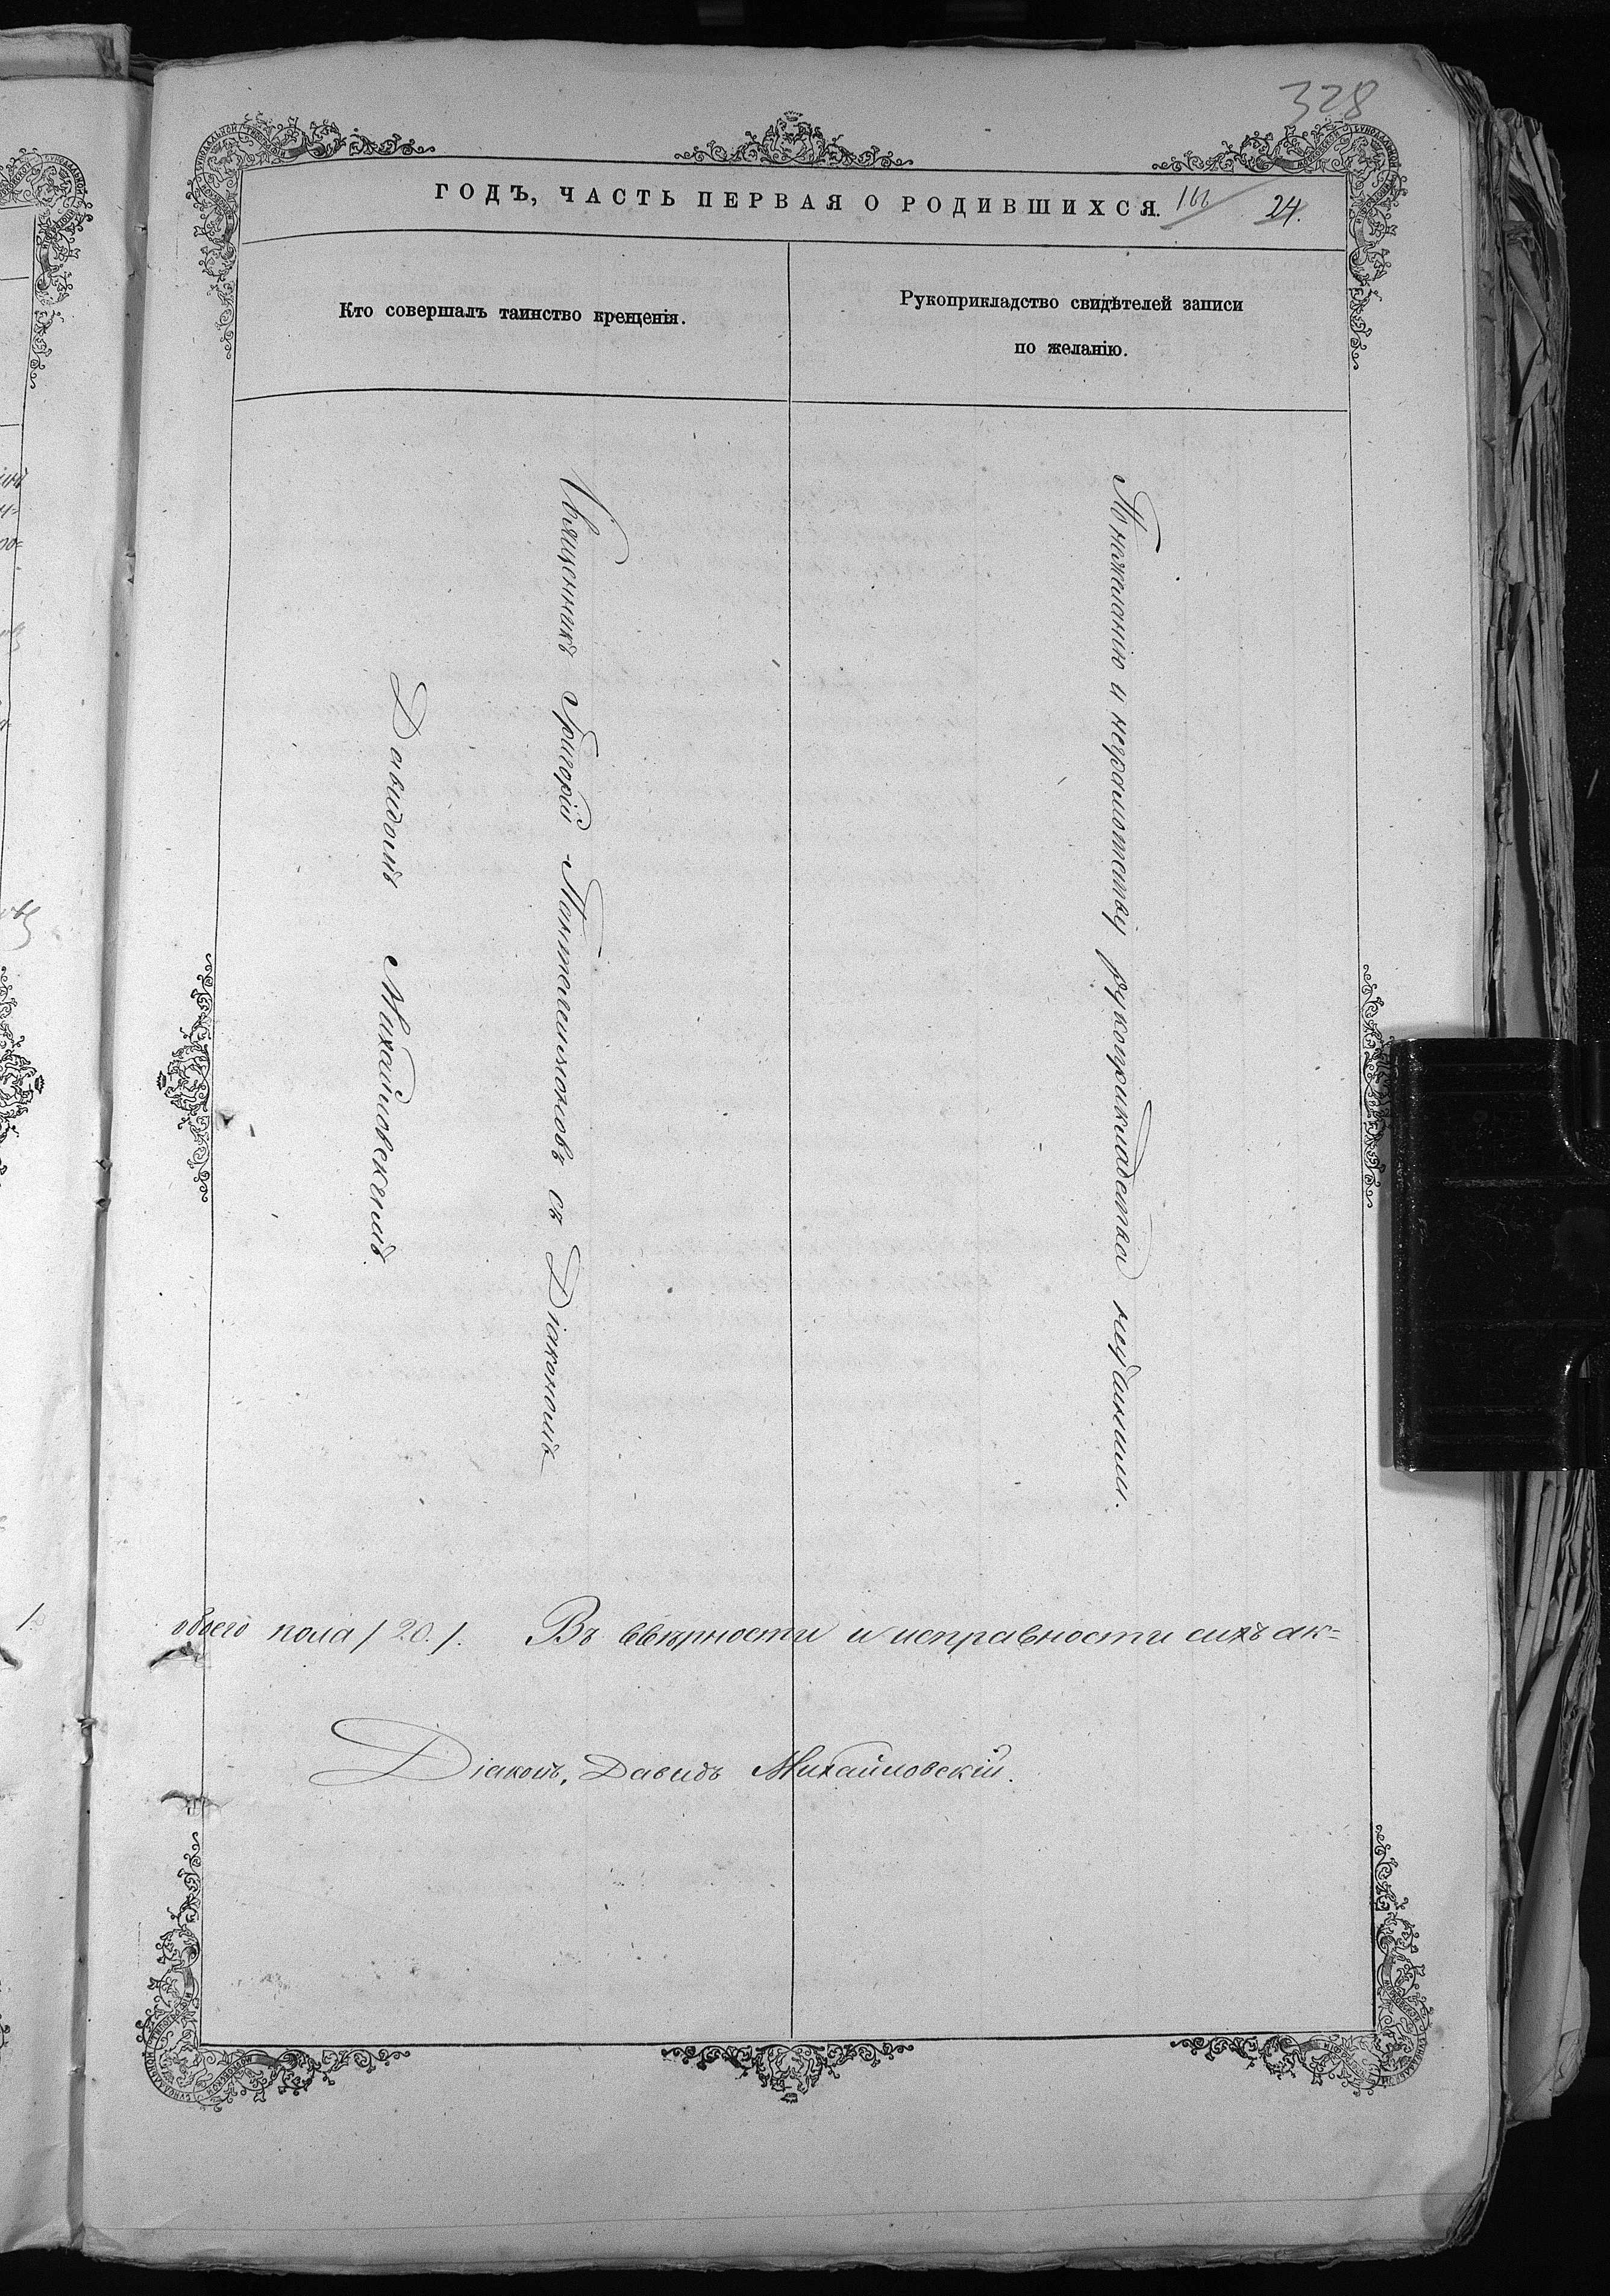 328
ГОДЪ, ЧАСТЬ ПЕРВАЯ О РОДИВШИХСЯ.
24.
Кто совершалъ таинство крещенія.
Рукоприкладство свидѣтелей записи
по желанію.
Священникъ Григорій Пантелеимоновъ съ Діакономъ
Давидомъ Михайловскимъ.
По нежеланію и неграмотству рукоприкладства неучинили.
обоего пола /20./. Въ ввѣрности и исправности сихъ ак=
Діаконъ, Давидъ Михайловскій.